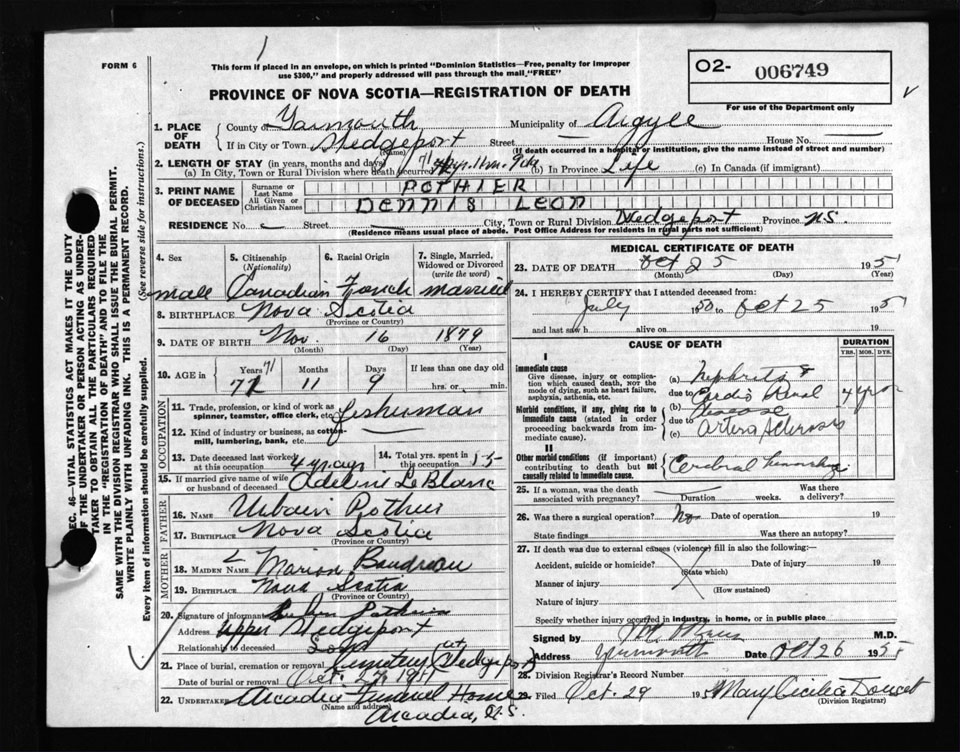 FORM 6
This form if placed in an envelope, on which is printed "Dominion Statistics—Free, penalty for improper
use $300," and properly addressed will pass through the mail "FREE"
PROVINCE OF NOVA SCOTIA—REGISTRATION OF DEATH
02- 006749
For use of the Department only
1. PLACE OF DEATH
County of Yarmouth Municipality of Argyle
If in City or Town Wedgeport Street House No.
(Name) (If death occurred in a hospital or institution, give the name instead of street and number)
2. LENGTH OF STAY (in years, months and days)
(a) In City, Town or Rural Division where death occurred 71 yrs. 11 m. 9 da (b) In Province Life (c) In Canada (if immigrant)
3. PRINT NAME OF DECEASED
Surname or Last Name POTHIER
All Given or Christian Names DENNIS LEON
RESIDENCE No. Street City, Town or Rural Division Wedgeport Province N.S.
(Residence means usual place of abode. Post Office Address for residents in rural parts not sufficient)
SEC. 46—VITAL STATISTICS ACT MAKES IT THE DUTY
OF THE UNDERTAKER OR PERSON ACTING AS UNDER-
TAKER TO OBTAIN ALL THE PARTICULARS REQUIRED
IN THE "REGISTRATION OF DEATH" AND TO FILE THE
SAME WITH THE DIVISION REGISTRAR WHO SHALL ISSUE THE BURIAL PERMIT.
WRITE PLAINLY WITH UNFADING INK. THIS IS A PERMANENT RECORD.
Every item of information should be carefully supplied. (See reverse side for instructions.)
4. Sex 5. Citizenship (Nationality) 6. Racial Origin 7. Single, Married, Widowed or Divorced (write the word)
male Canadian French married
8. BIRTHPLACE Nova Scotia
(Province or Country)
9. DATE OF BIRTH Nov. 16 1879
(Month) (Day) (Year)
10. AGE Years Months Days If less than one day old
71 72 11 9 hrs. or min.
OCCUPATION
11. Trade, profession, or kind of work as spinner, teamster, office clerk, etc. fisherman
12. Kind of industry or business, as cotton-mill, lumbering, bank, etc.
13. Date deceased last worked at this occupation 4 yrs ago 14. Total yrs. spent in this occupation
15. If married give name of wife or husband of deceased Adeline LeBlanc
FATHER
16. NAME Urbain Pothier
17. BIRTHPLACE Nova Scotia
(Province or Country)
MOTHER
18. MAIDEN NAME Marion Boudreau
19. BIRTHPLACE Nova Scotia
(Province or Country)
20. Signature of informant Pothier
Address Upper Wedgeport
Relationship to deceased Son
21. Place of burial, cremation or removal Cemetery (at Wedgeport)
Date of burial or removal Oct. 27, 1951
22. UNDERTAKER Arcadia Funeral Home
(Name and address) Arcadia, N.S.
MEDICAL CERTIFICATE OF DEATH
23. DATE OF DEATH Oct 25 1951
(Month) (Day) (Year)
24. I HEREBY CERTIFY that I attended deceased from:
July 1950 to Oct 25 1951
and last saw h alive on 19
CAUSE OF DEATH
DURATION
YRS. MOS. DYS.
I
Immediate cause
Give disease, injury or complication which caused death, NOT the mode of dying, such as heart failure, asphyxia, asthenia, etc.
(a) Nephritis &
due to Cardio Renal 4 yrs
Morbid conditions, if any, giving rise to immediate cause (stated in order proceeding backwards from immediate cause).
(b) disease
due to
(c) Arterio Sclerosis
II
Other morbid conditions (if important) contributing to death but not causally related to immediate cause.
Cerebral hemorrhage
25. If a woman, was the death associated with pregnancy? Duration weeks. Was there a delivery?
26. Was there a surgical operation? No Date of operation 19
State findings Was there an autopsy?
27. If death was due to external causes (violence) fill in also the following:—
Accident, suicide or homicide? (State which) Date of injury 19
Manner of injury (How sustained)
Nature of injury
Specify whether injury occurred in industry, in home, or in public place
Signed by M.D.
Address Yarmouth Date Oct 26 1951
28. Division Registrar's Record Number
29. Filed Oct. 29 1951 Mary Cecilia Doucet
(Division Registrar)